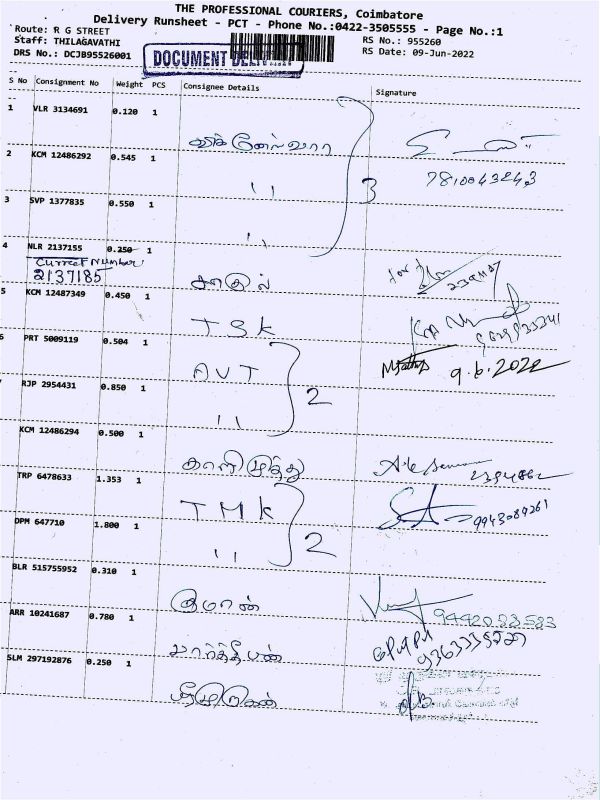 THE PROFESSIONAL COURIERS, Coimbatore
Delivery Runsheet - PCT - Phone No.:0422-3505555 - Page No.:1
Route: R G STREET
RS No.: 955260
Staff: THILAGAVATHI
RS Date: 09-Jun-2022
DRS No.: DCJB95526001
DOCUMENT DELIVERY
S No Consignment No Weight PCS Consignee Details Signature
1 VLR 3134691 0.120 1
விக்னேஸ்வரா
2 KCM 12486292 0.545 1
7810043243
"
3
3 SVP 1377835 0.550 1
"
4 NLR 2137155 0.250 1
Current Number
2137185
5 KCM 12487349 0.450 1
TSK
6 PRT 5009119 0.504 1
AVT
9.6.2022
RJP 2954431 0.850 1
2
"
KCM 12486294 0.500 1
காளிமுத்து
TRP 6478633 1.353 1
TMK
9943089261
DPM 647710 1.800 1
"
2
BLR 515755952 0.310 1
குமரன்
ARR 10241687 0.780 1
பார்த்தீபன்
SLM 297192876 0.250 1
ஸ்ரீமுருகன்